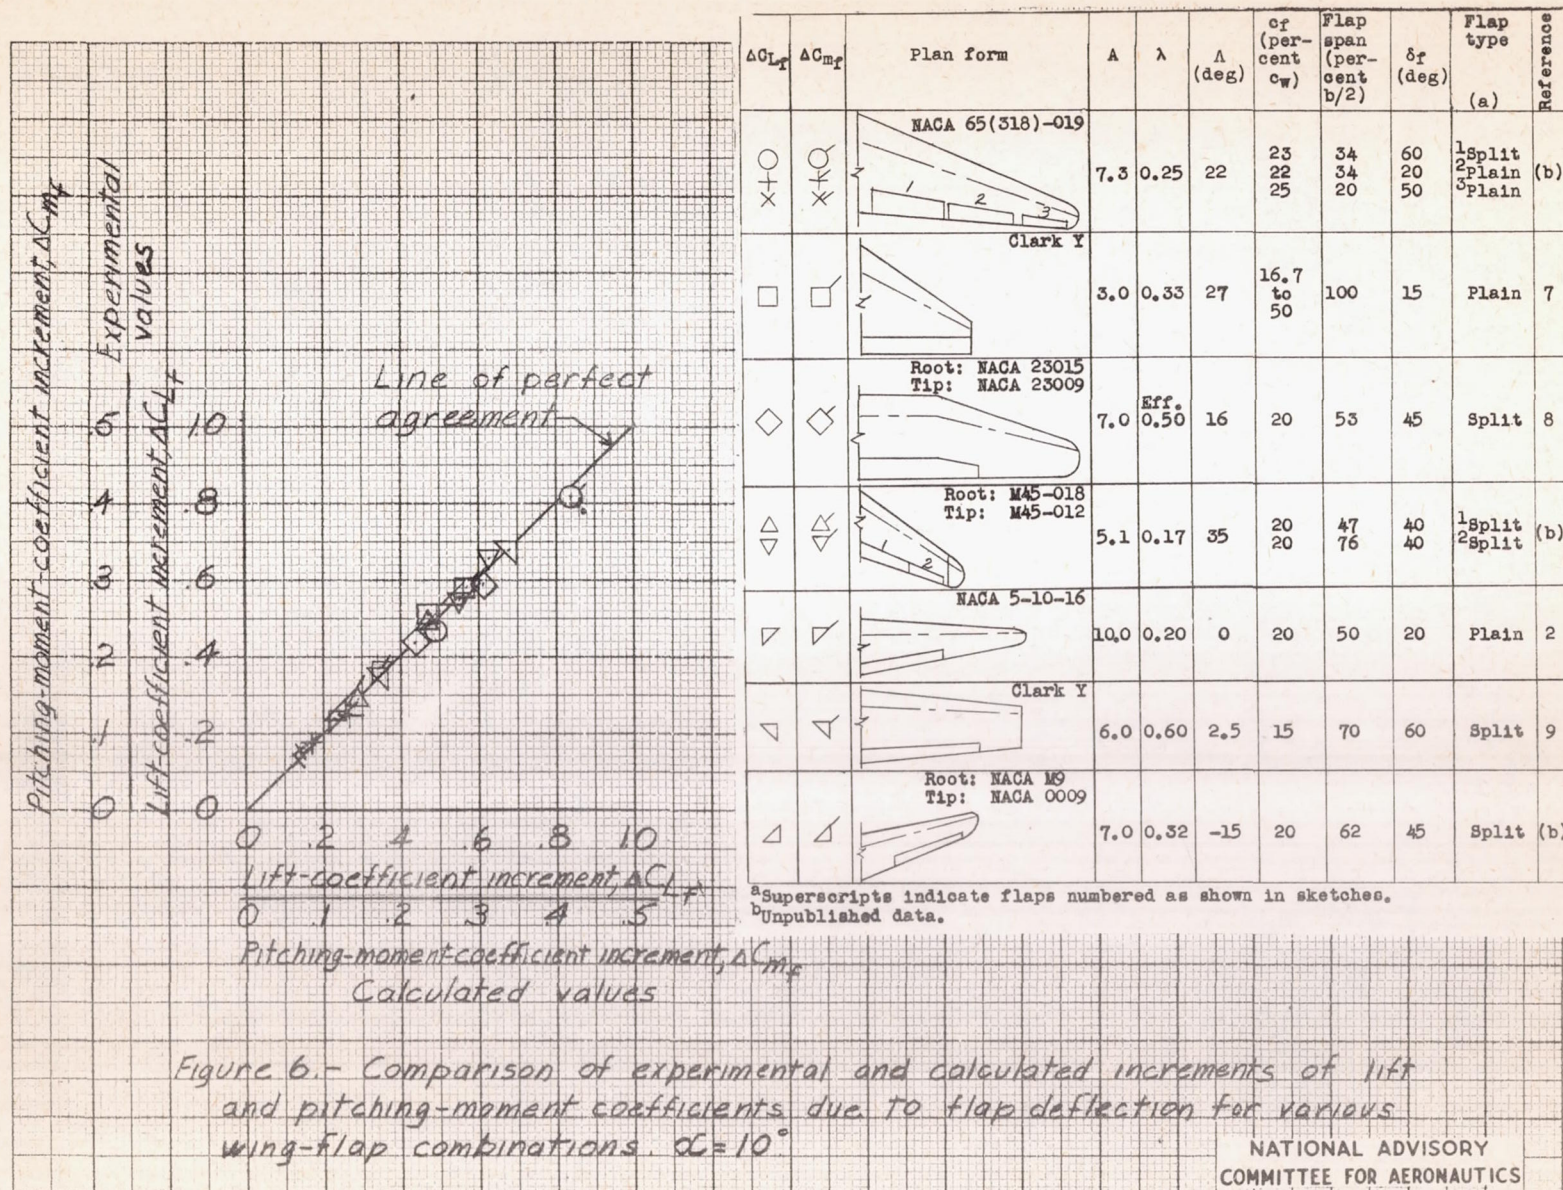 Pitching-moment-coefficient increment, ΔCmf
Experimental
values
Lift-coefficient increment, ΔCLf
.5 1.0
.4 .8
.3 .6
.2 .4
.1 .2
0 0
Line of perfect
agreement
0 .2 .4 .6 .8 1.0
Lift-coefficient increment, ΔCLf
0 .1 .2 .3 .4 .5
Pitching-moment-coefficient increment, ΔCmf
Calculated values
ΔCLf ΔCmf Plan form A λ Λ (deg) cf (per-cent cw) Flap span (per-cent b/2) δf (deg) Flap type (a) Reference
NACA 65(318)-019
1 2 3
7.3 0.25 22
23 34 60 1Split
22 34 20 2Plain (b)
25 20 50 3Plain
Clark Y
3.0 0.33 27 16.7 to 50 100 15 Plain 7
Root: NACA 23015
Tip: NACA 23009
7.0 Eff. 0.50 16 20 53 45 Split 8
Root: M45-018
Tip: M45-012
1 2
5.1 0.17 35
20 47 40 1Split
20 76 40 2Split (b)
NACA 5-10-16
10.0 0.20 0 20 50 20 Plain 2
Clark Y
6.0 0.60 2.5 15 70 60 Split 9
Root: NACA M9
Tip: NACA 0009
7.0 0.32 -15 20 62 45 Split (b)
aSuperscripts indicate flaps numbered as shown in sketches.
bUnpublished data.
Figure 6.- Comparison of experimental and calculated increments of lift
and pitching-moment coefficients due to flap deflection for various
wing-flap combinations. α=10°
NATIONAL ADVISORY
COMMITTEE FOR AERONAUTICS